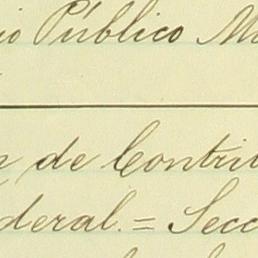 io Público M
de Contrib
deral. = Secc